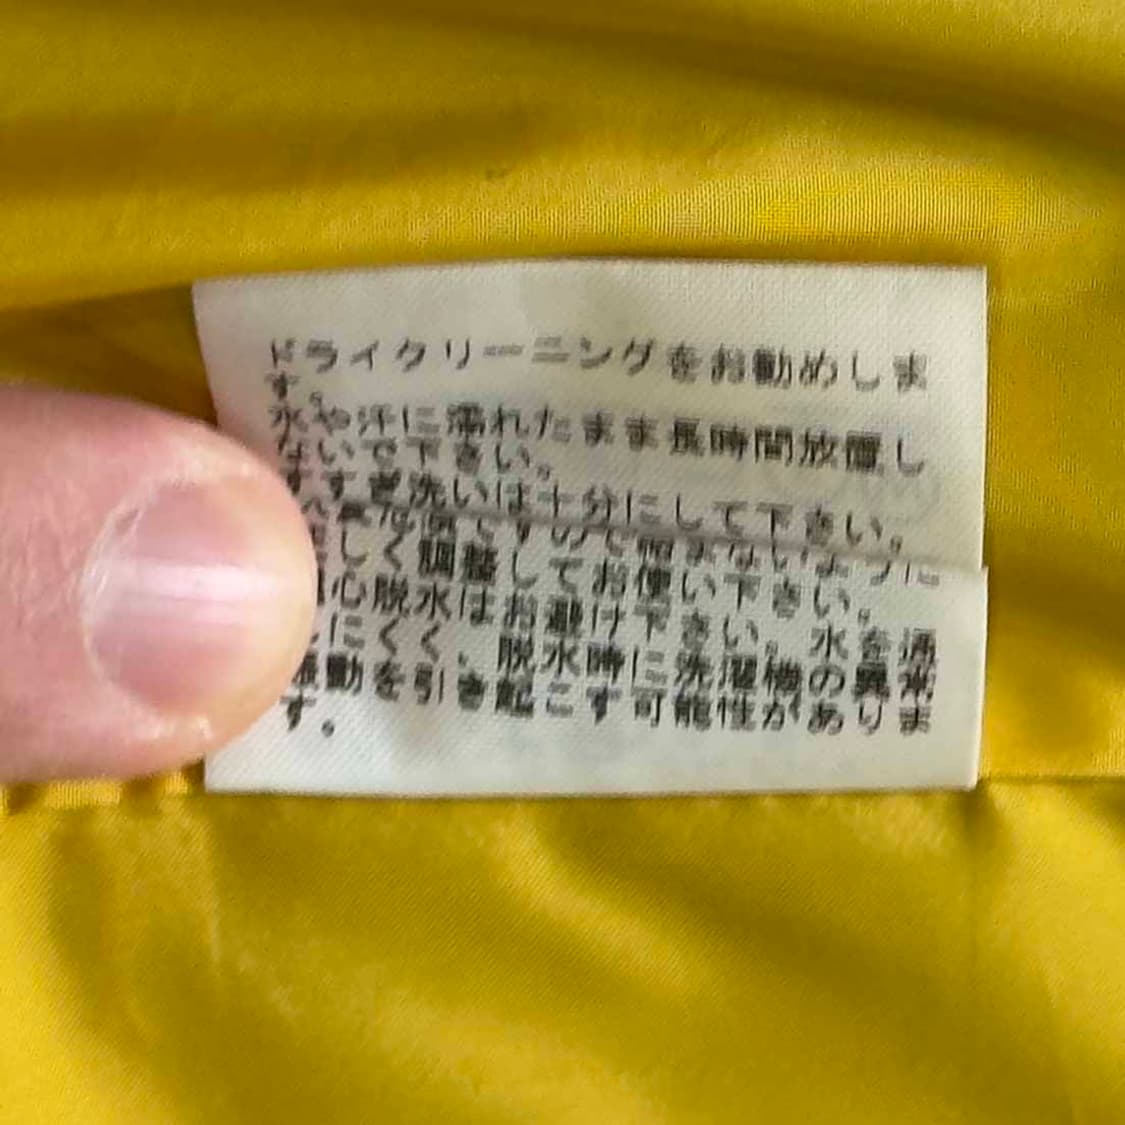 ドライクリーニングをお勧めしま
す。
水や汗に濡れたまま長時間放置し
ないで下さい。
すすぎ洗いは十分にして下さい。
しく調整してお使い下さい。
心脱水はお避け下さい。水を通
にくく、脱水時に洗濯機の異常
動を引き起こす可能性がありま
す。